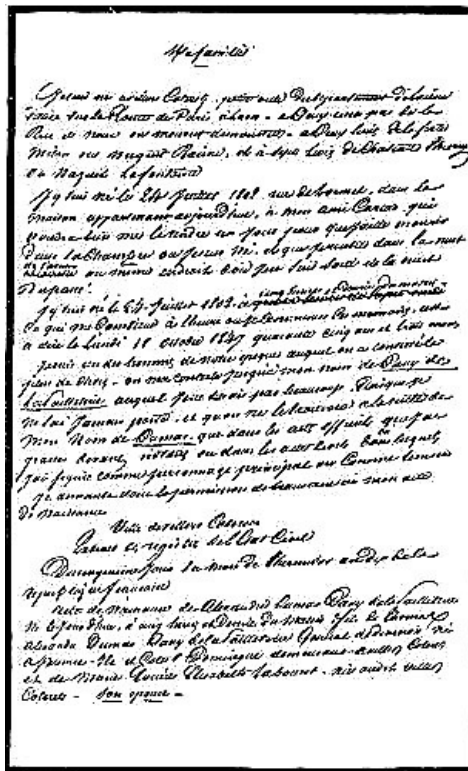 Ma famille
Je suis né à Villers Cotterets, petite ville du département de l'Aisne
située sur la Route de Paris à Laon - à Deux cents pas de la
Rue de ou mourut - à Deux lieues de la ferté
Milon ou naquit Racine, et à sept lieues de Château Thierry
ou naquit Lafontaine
J'y suis né le 24 Juillet 1802 rue de Lormet, dans la
maison appartenant aujourd'hui, à mon ami Cartier qui
voudra bien me la vendre un jour pour que j'aille mourir
Dans la Chambre ou je suis né, et que je rentre dans la nuit
de l'avenir
au même endroit d'où je suis sorti de la nuit
Du passé.
J'y suis né le 24 Juillet 1802, à cinq heures et demie du matin
ce qui me constitue à l'heure ou je commence ces mémoires,
à dire le Lundi 18 octobre 1847 quarante cinq ans et trois mois
Je suis un des hommes de notre époque auquel on a contesté le
plus de choses - on m'a contesté jusqu'à mon nom de Davy de
la Pailleterie auquel je ne tenais pas beaucoup, puisque je
ne l'ai jamais porté, et qu'on ne le trouvera à la suite de
mon Nom de Dumas, que dans les actes officiels que j'ai
notaires ou dans les actes civils dans lesquels
j'ai figuré comme personnage principal ou comme témoin
Je demande donc la permission de transcrire ici mon acte
De naissance
Ville de villers Cotterets
Extrait des registres de l'Etat Civil
Du cinquième jour du mois de Thermidor an dix de la
république française
Acte de naissance de Alexandre Dumas Davy de la Pailleterie
né le jour d'hier, à cinq heures et Demie du Matin fils de Thomas
Alexandre Dumas Davy de la Pailleterie Général de Division, né
et de Marie Louise Elisabeth Labouret - née audit villers
Cotterets - son épouse -